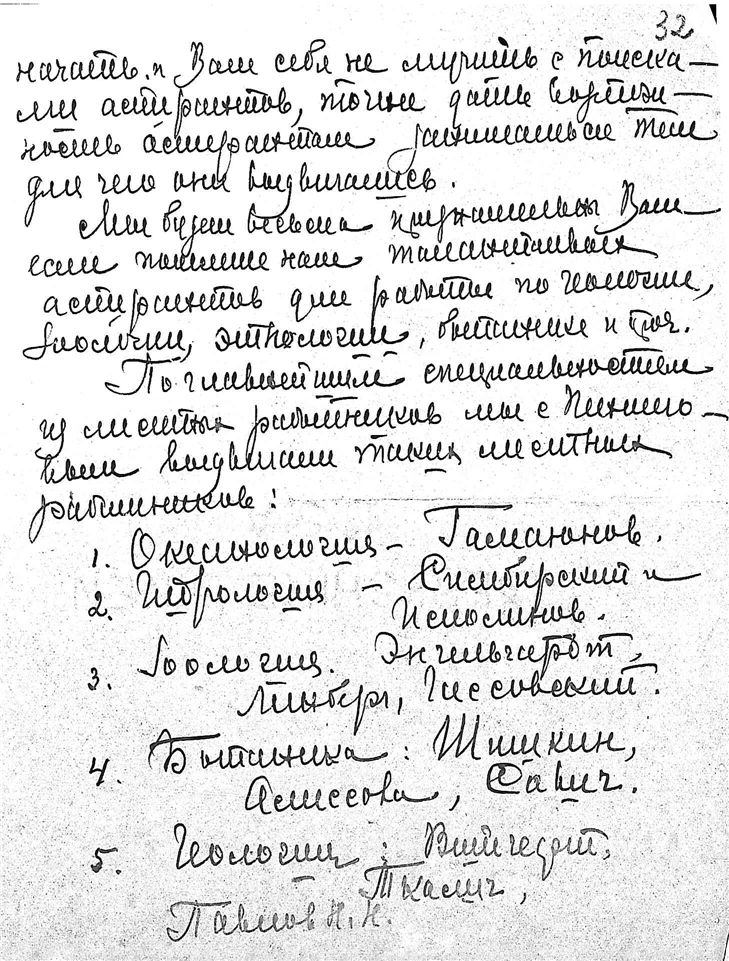 32
начать. и Вам себя не мучить с поиска—
ми аспирантов, точнее дать возмож—
ность аспирантам заниматься тем
для чего они выдвигались.
Мы будем весьма признательны Вам
если пошлете нам талантливых
аспирантов для работы по геологии,
зоологии, этнологии, ботанике и проч.
По главнейшим специальностям
из местных работников мы с
выдвигаем таких местных
работников:
1. Океанология — Гамаюнов.
2. Гидрология — Симбирский и
Исполинов.
3. Зоология. Энгельгардт,
Линдберг, Гассовский.
4. Ботаника: Шишкин,
Алисова, Савич.
5. Геология:
Ткалич,
Павлов Н.Н.